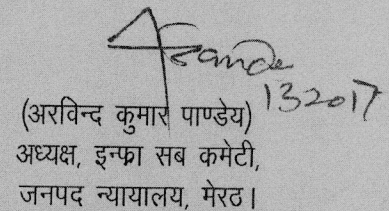 13 2017
(अरविन्द कुमार पाण्डेय)
अध्यक्ष, इन्फ्रा सब कमेटी,
जनपद न्यायालय, मेरठ।